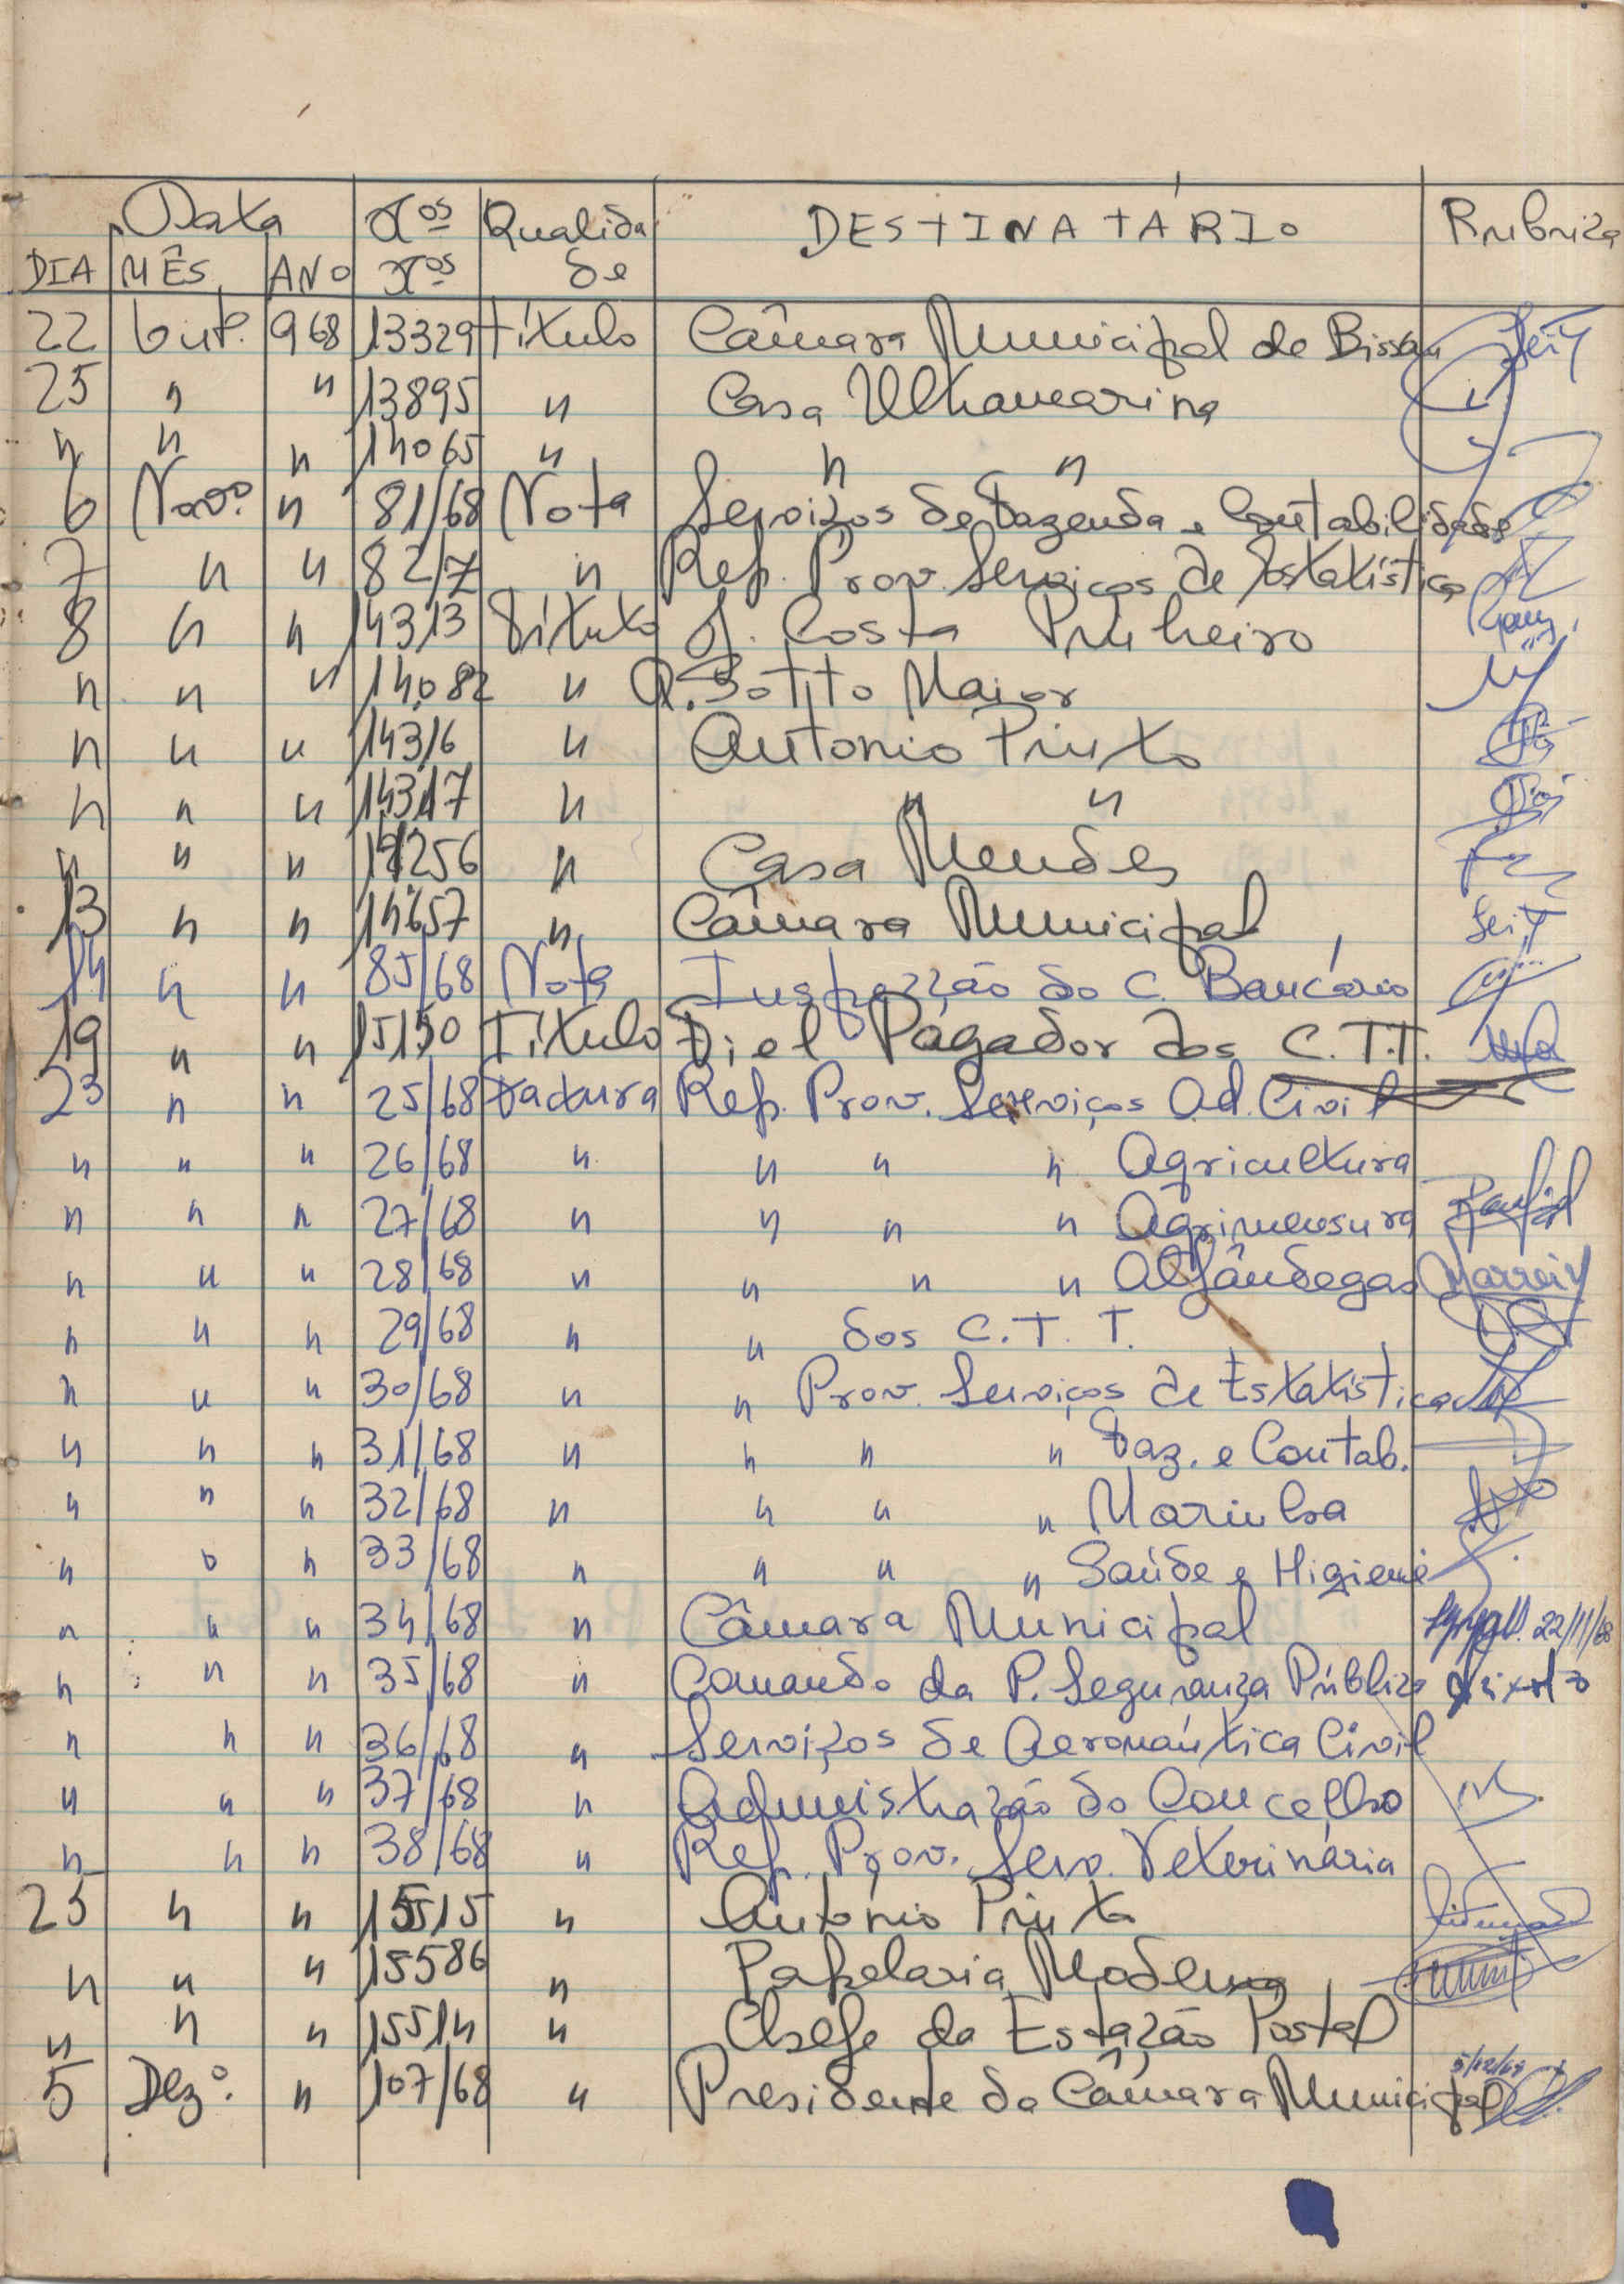 Data Nos Qualida DESTINATÁRIO Rubrica
DIA MÊS ANO Nos de
22 Outº. 968 13329 título Câmara Municipal de Bissau
25 " " 13895 " Casa Ultramarina
" " " 14065 " " "
6 Novº. " 81/68 Nota Serviços de Fazenda e Contabilidade
7 " " 82/7 " Rep. Prov. Serviços de Estatística
8 " " 14313 Título J. Costa Pinheiro
" " " 14082 " A. Sotto Maior
" " " 14316 " António Pinto
" " " 14317 " " "
" " " 14256 " Casa Mendes
13 " " 14657 " Câmara Municipal
14 " " 85/68 Nota Inspecção do C. Bancário
19 " " 15150 Título Fiel Pagador dos C.T.T.
23 " " 25/68 Factura Rep. Prov. Serviços Ad. Civil
" " " 26/68 " " " " Agricultura
" " " 27/68 " " " " Agrimensura
" " " 28/68 " " " " Alfândegas
" " " 29/68 " " dos C.T.T.
" " " 30/68 " " Prov. Serviços de Estatística
" " " 31/68 " " " " Faz. e Contab.
" " " 32/68 " " " " Marinha
" " " 33/68 " " " " Saúde e Higiene
" " " 34/68 " Câmara Municipal 22/11/68
" " " 35/68 " Comando da P. Segurança Pública
" " " 36/68 " Serviços de Aeronáutica Civil
" " " 37/68 " Administração do Concelho
" " " 38/68 " Rep. Prov. Serv. Veterinária
25 " " 15515 " António Pinto
" " " 15586 " Papelaria Moderna
" " " 15514 " Chefe da Estação Postal
5 Dezº. " 107/68 " Presidente da Câmara Municipal 5/12/68